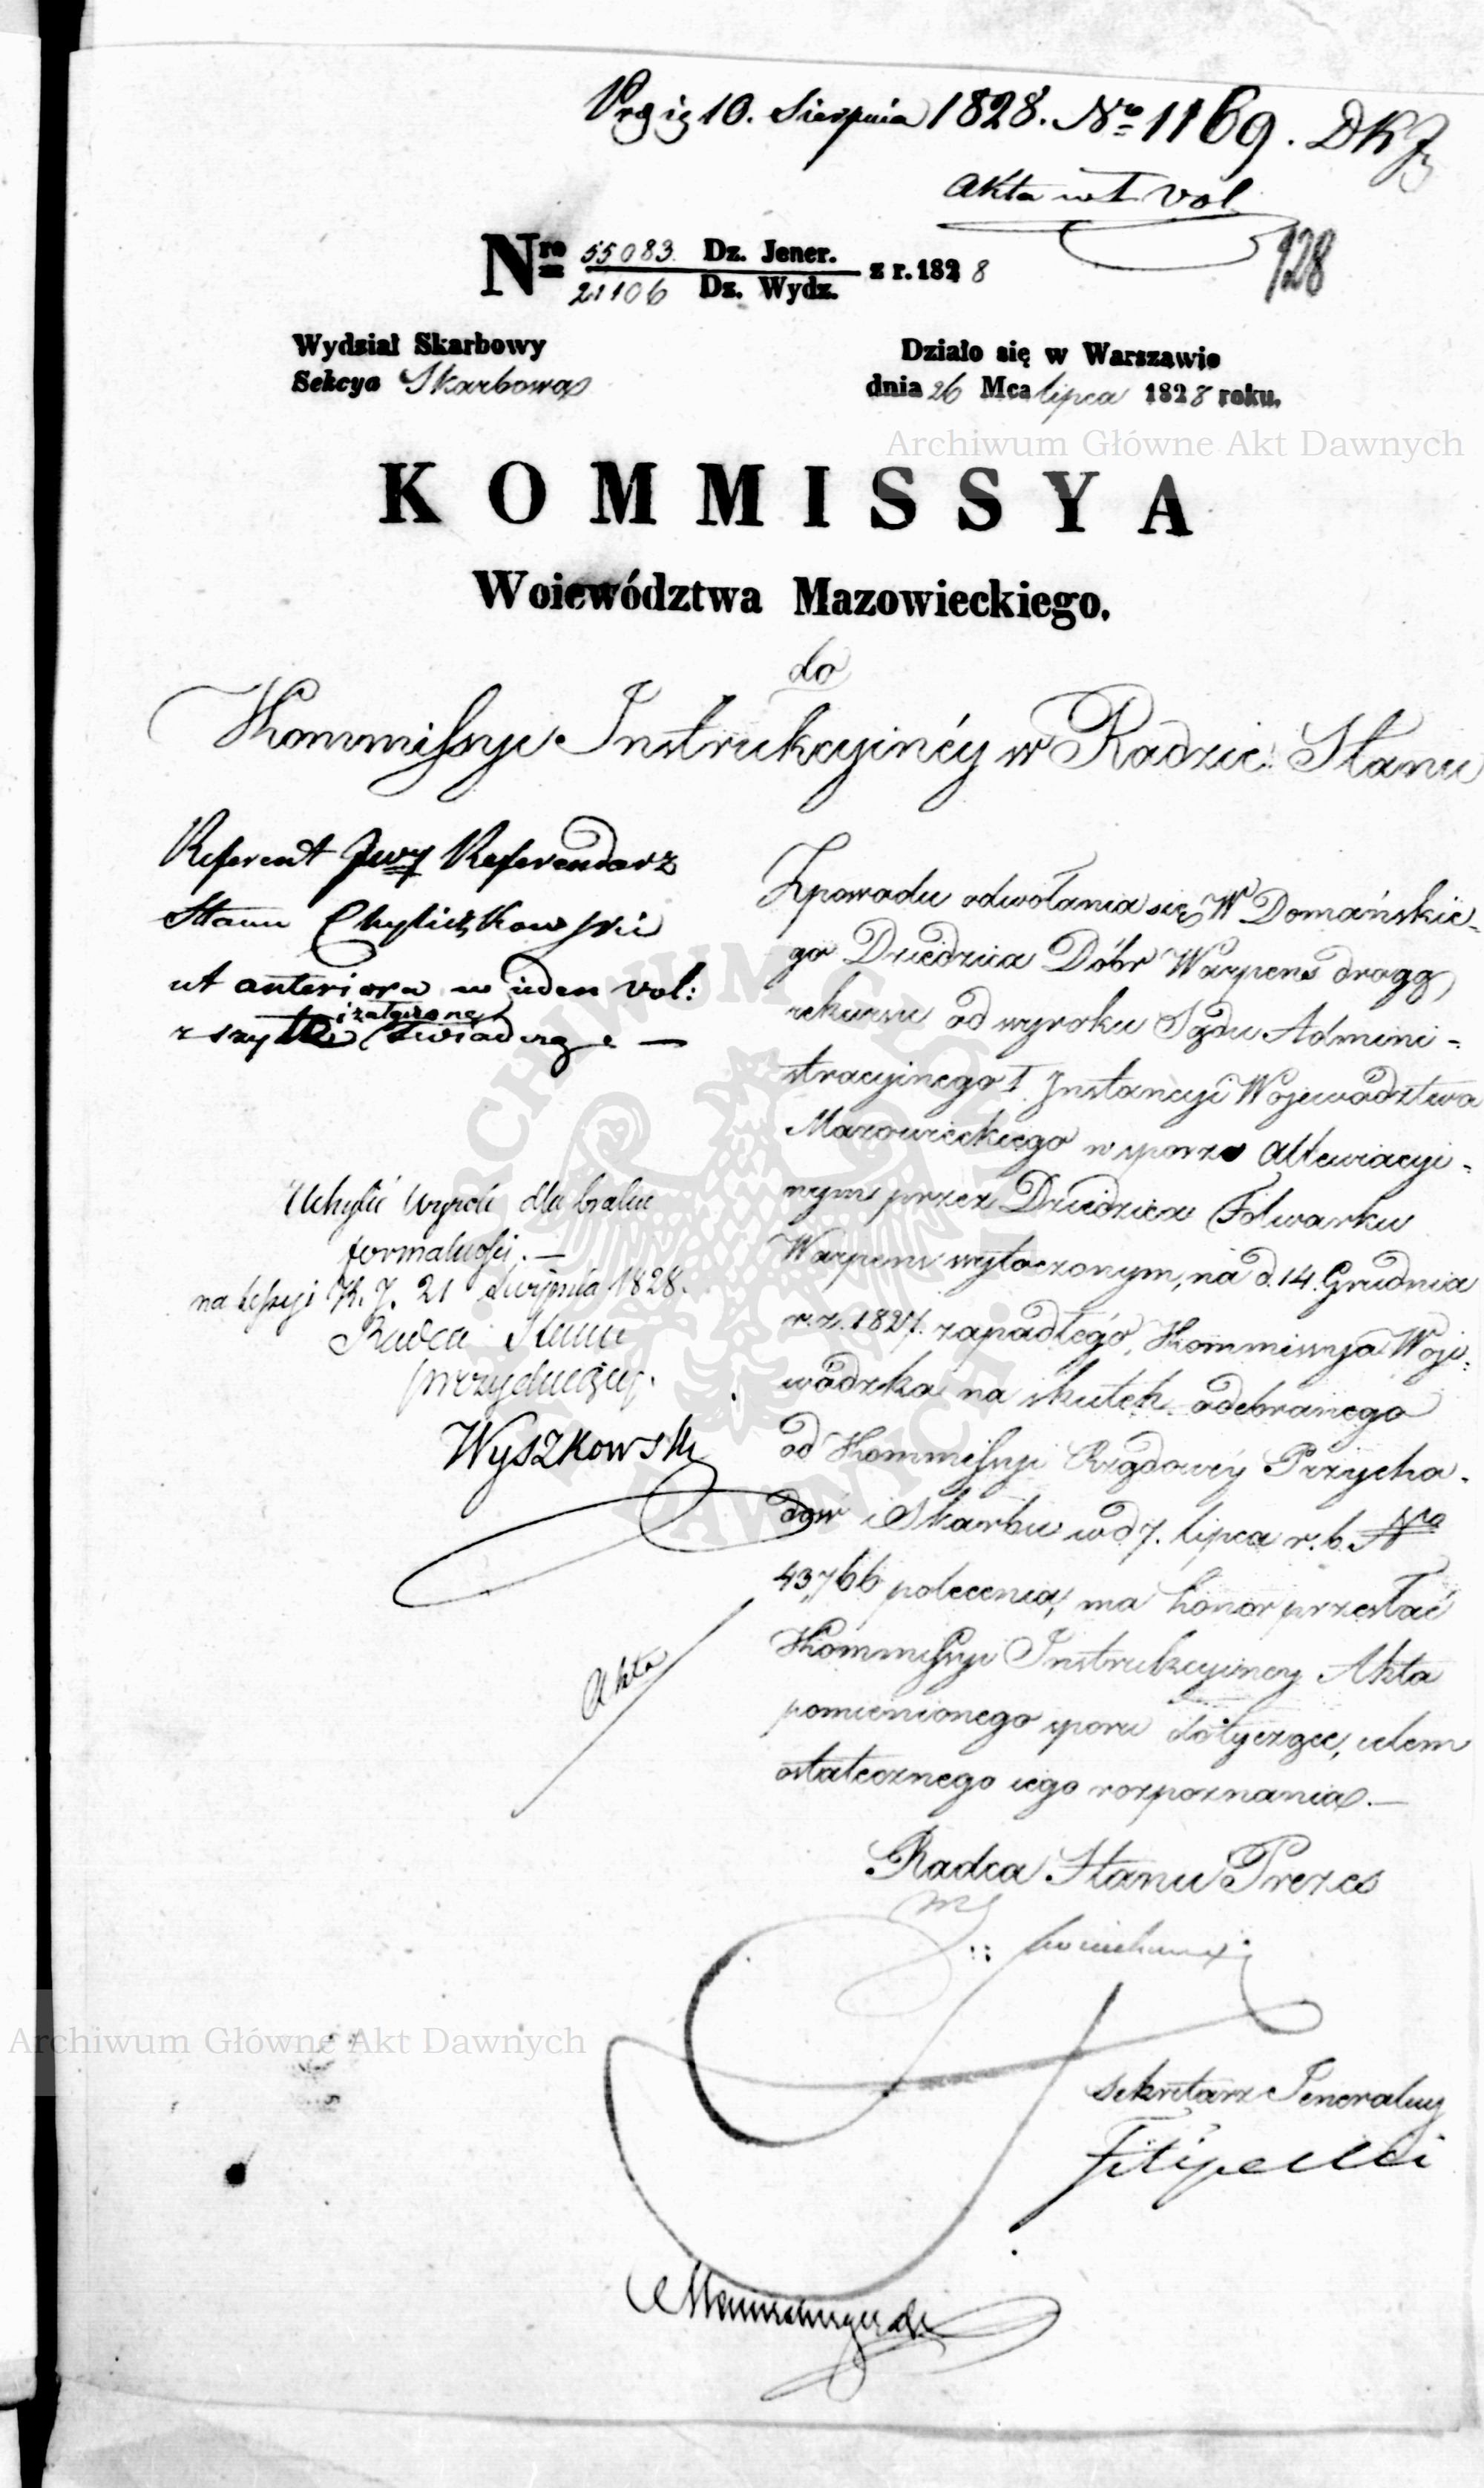 10. Sierpnia 1828. Nro 1169. DKJ
Akta w I vol
128
Nro 55083. Dz. Jener.
21106 Dz. Wydz.
z r. 1828
Wydział Skarbowy
Sekcya Skarbowa
Działo się w Warszawie
dnia 26 Mca lipca 1828 roku.
Archiwum Główne Akt Dawnych
KOMMISSYA
Woiewództwa Mazowieckiego.
do
Kommissyi Instrukcyinéy w Radzie Stanu
Referent Jwy Referendarz
Stanu Chyliczkowski
ut anteriora w ieden vol:
i załączone
zszyte
Uchylić wyrok dla braku
formalności. —
na sessyi K. J. 21 Sierpnia 1828.
Radca Stanu
prezyduiący.
Wyszkowski
Akta
Zpowodu odwołania się W Domańskie-
go Dziedzica Dóbr Warpens drogą
rekursu od wyroku Sądu Admini-
stracyinego I. Instancyi Woiewództwa
Mazowieckiego w sporze Allewiacyi-
nym przez Dziedzica Folwarku
Warpens wytoczonym, na d. 14. Grudnia
r. z. 1827. zapadłégo, Kommissya Woje-
wódzka na skutek odebranego
od Kommissyi Rządowéy Przycho-
dów i Skarbu w d 7. lipca r. b. Nro
43,766 polecenia, ma honor przesłać
Kommissyi Instrukcyiney Akta
pomienionego sporu dotyczące, celem
ostatecznego iego rozpoznania. —
Radca Stanu Prezes
Archiwum Główne Akt Dawnych
Sekretarz Jeneralny
Filipecki